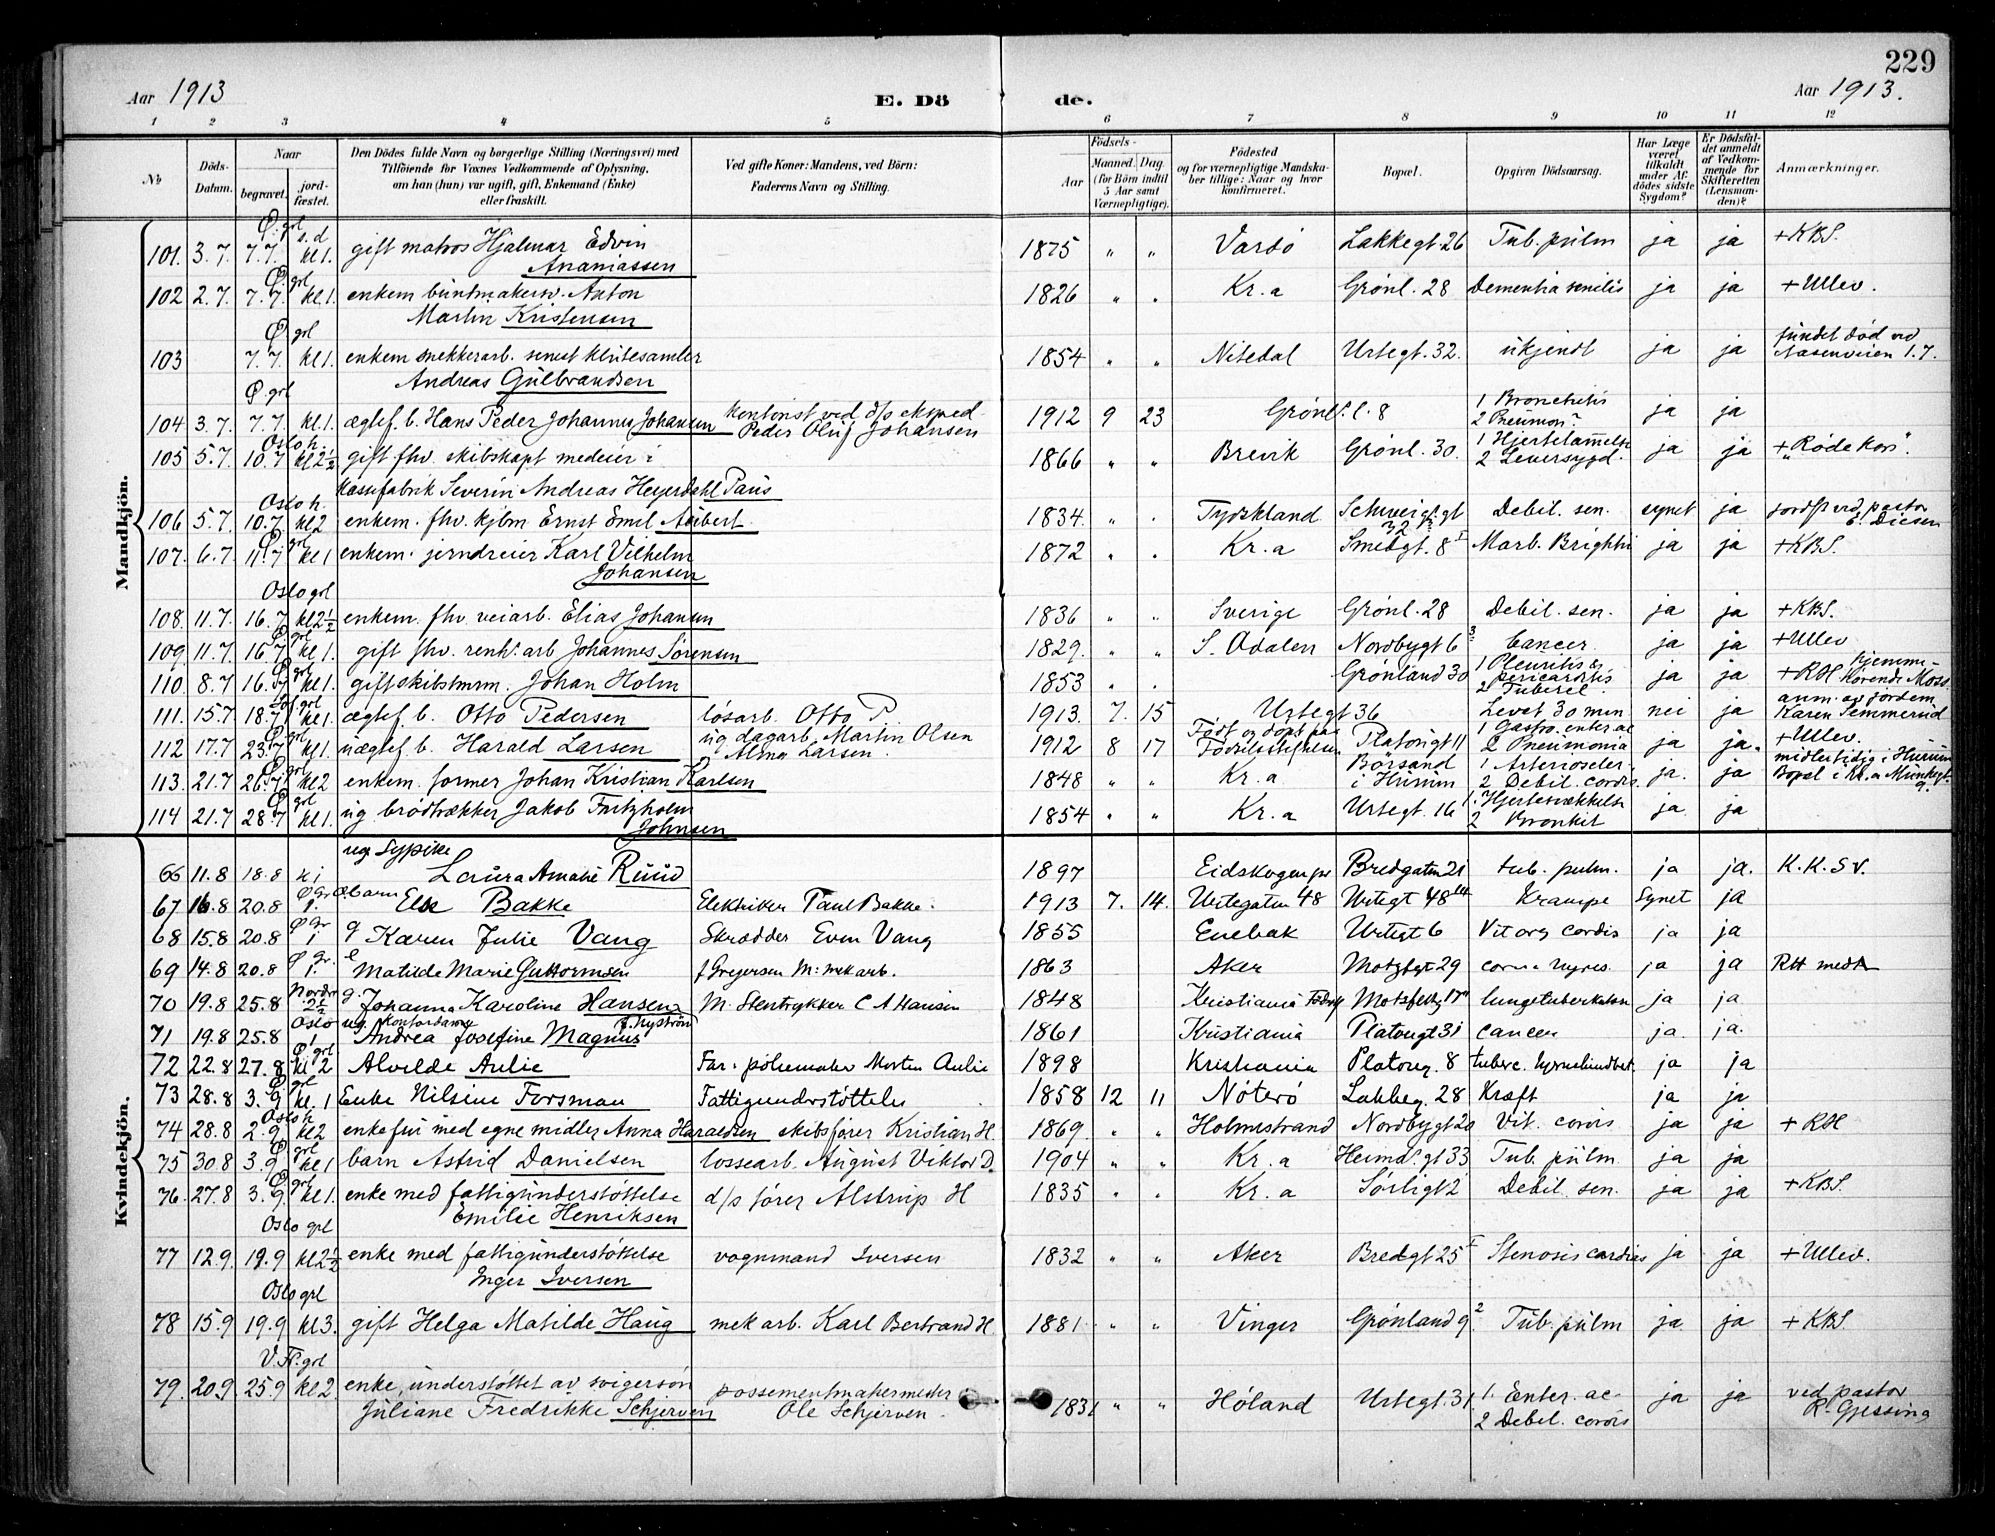 229
Aar 1913
E. Dö
de.
Aar 1913.
1 2 3 4 5 6 7 8 9 10 11 12
No
Döds-Datum.
Naar
begravet.
jord-fæstet.
Den Dödes fulde Navn og borgerlige Stilling (Næringsvei) med
Tilföiende for Voxnes Vedkommende af Oplysning,
om han (hun) var ugift, gift, Enkemand (Enke)
eller fraskilt.
Ved gifte Koner: Mandens, ved Börn:
Faderens Navn og Stilling.
Födsels-
Aar
Maaned. Dag.
(for Börn indtil
5 Aar samt
Værnepligtige).
Födested
og for værnepligtige Mandska-
ber tillige: Naar og hvor
konfirmeret.
Bopæl.
Opgiven Dödsaarsag.
Har Læge
været
tilkaldt
under Af-
dödes sidste
Sygdom?
Er Dödsfal-
det anmeldt
af Vedkom-
mende for
Skifteretten
(Lensman-
den)?
Anmærkninger.
Mandkjön.
Ø. grl s.d
101. 3.7. 7.7. kl 1. gift matros Hjalmar Edvin 1875 " " Vardø Lakkegt. 26 Tub. pulm ja ja + KBS.
Ananiassen
Ø. grl
102 2.7. 7.7. kl. 1. enkem buntmakersv. Anton 1826 " " Kr.a Grönl. 28 Dementia senilis ja ja + Ullev.
Martin Kristensen
Ø grl
103 7.7. kl 1. enkem snekkerarb. senest klutesamler 1854 " " Nitedal Urtegt. 32. ukjendt ja ja fundet død ved
Andreas Gulbrandsen 1.7.
Ø. grl
104 3.7. 7.7. kl. 1. ægtef. b. Hans Peder Johannes Johansen kontorist ved d/s eksped. 1912 9 23 Grønl. l. 8 1 Bronchitis ja ja
Peder Oluf Johansen 2 Pneumon?
Oslo h.
105 5.7. 10.7 kl 2½ gift fhv. skibskapt medeier i 1866 " " Brevik Grønl. 30. 1 Hjertelammelse ja ja + "Røde Kors".
kassefabrik Severin Andreas Heyerdahl Paus 2 Leversygd.
Oslo h.
106 5.7. 10.7. kl 2 enkem. fhv. kjbm Ernst Emil Aubert 1834. " " Tydskland Schweigs. gt Debil. sen. synet ja jordf. ved pastor
32 E. Diesen
Ø grl
107. 6.7 11.7 kl 1 enkem. jerndreier Karl Vilhelm 1872 " " Kr.a Smedgt. 8 I Morb. Brightii ja ja + KBS.
Johansen
Oslo grl
108. 11.7. 16.7. kl 2½ enkem. fhv. veiarb. Elias Johansen 1836 " " Sverige Grønl. 28 Debil. sen. ja ja + KBS.
Ø. grl
109. 11.7. 16.7. kl 1. gift fhv. renh. arb Johannes Sørensen 1829. " " S. Odalen Nordbygt 6 3 Cancer ja ja + Ullev
Ø grl
110. 8.7 16.7 kl 1. gift skibstmrm. Johan Holm 1853 " " Grønland 30 1 Pleuritis og pericarditis 2 Tubercl. ja ja + RH hjemme-
hørende Moss
grl
111. 15.7 18.7 kl 1 ægtef b. Otto Pedersen løsarb. Otto P 1913. 7. 15 Urtegt 36 Levet 30 min nei ja anm. av jordem
Karen Semmerud
Ø grl
112 17.7 23.7 kl 1. uægtef b. Harald Larsen ug dagarb. Martin Olsen 1912 8 17 Født og døpt paa Fødselsstiftelsen Platousgt 11 1 Gastro. enter. ac ja ja. + Ullev.
Alma Larsen. 2 Pneumonia
Ø grl
113. 21.7 26.7 kl 2 enkem. former Johan Kristian Karlsen 1848 " " Kr.a Børsand i Hurum 1 Arterioscler. 2 Debil. cordis ja. ja midlertidig i Hurum
Bopæl i Kr.a Munkegt. 9.
Ø grl
114 21.7 28.7 kl 1. ug. brødtrækker Jakob Fritzholm 1854 " " Kr.a Urtegt. 16 1. Hjertesvækkelse ja ja
Johnsen 2 Bronkit
Kvindekjön.
ug. Sypike
66 11.8 18.8 Laura Amalie Ruud 1897 Eidskogen Bredgaten 21 tub. pulm. ja ja. K.K.SV.
Ø Gr
67 16.8 20.8 1. Æ. barn Else Bakke Elektriker Paul Bakke. 1913 7. 14. Urtegaten 48 Urtegt 48 Krampe Synet ja
Ø Gr
68 15.8 20.8 1 g Karen Julie Vang Skrædder Even Vang 1855 Enebak Urtegt 6 Vit org cordis ja ja
Ø Gr.
69 14.8 20.8 1. e Matilde Marie Guttormsen f Gregersen M: mek arb. 1863 Aker Motzfgt 29 ja ja
Nordr
70 19.8 25.8 2½ g. Johanna Karoline Hansen M. Stentrykker C A Hansen 1848 Kristiania Motsfeldtgt 17 lungetuberkulose ja ja
Oslo
71 19.8 25.8 1 ug. Kontordame Andrea Josefine Magnus f. Nystrøm 1861 Kristiania Platousgt 31 cancer ja. ja.
Ø. grl
72 22.8 27.8 kl 2 Alvilde Aulie Far: pølsemaker Morten Aulie 1898 Kristiania Platoug. 8 tuberc. hjernehindbet. ja ja
Ø. grl
73 28.8 3.9 kl. 1 Enke Nilsine Forsman Fattigunderstøttelse 1858 12 11 Nøterø Lakkeg. 28 Kræft ja ja
Oslo h.
74 28.8 2.9 kl 2 enkefru med egne midler Anna Haraldsen skibsfører Kristian H. 1869. " " Holmestrand Nordbygt 20 Vit. cordis ja ja + RH
Ø grl
75 30.8 3.9 kl 1 barn Astrid Danielsen lossearb. August Viktor D. 1904 " " Kr.a Heimdlsgt 33 Tub. pulm ja ja
Ø. grl
76. 27.8 3.9. kl 1. enke med fattigunderstøttelse d/s fører Alstrup H 1835 " " Kr.a Sørligt 2 Debil. sen. ja ja + KBS.
Emilie Henriksen
Oslo grl
77 12.9. 19.9 kl 2½ enke med fattigunderstøttelse vognmand Iversen 1832 " " Aker Bredgt 25 I Stenosis cardias ja ja + Ullev.
Inger Iversen
Oslo grl
78 15.9 19.9 kl 3. gift Helga Matilde Haug mek arb. Karl Bertrand H. 1881 " " Vinger Grønland 9 2 Tub. pulm ja ja + KBS.
V. Fr. grl
79. 20.9. 25.9 kl 2 enke, understøttet av svigersøn possementmakermester 1831 " " Høland Urtegt. 31 1. Enter. ac- ja ja ved pastor
Juliane Fredrikke Schjerven Ole Schjerven. 2 Debil. cordis R. Gjessing